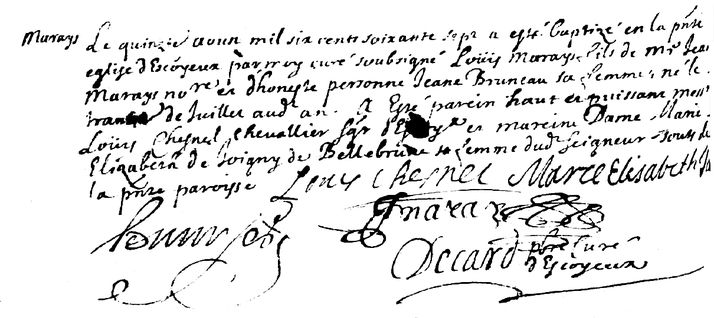 Marays Le quinzie aoun mil six cent soixante sept a esté Baptizé en la pnte
eglise d'Escoyeux par moy curé soubsigné Loüis Marays fils de Mr Jea
Marays no re et d'honeste personne Jeane Bruneau sa femme ; né le
de Juillet aud an . A Esté parein haut et puissant mess
Loüis Chesnel Chevallier sgr d' et mareine Dame Marie
Elizabeth de Joigny de Bellebrune sa femme dud seigneur tous de
la pnte paroisse Louis Chesnel Marie Elisabeth
Marays
Decard pbre curé
d'Escoyeux